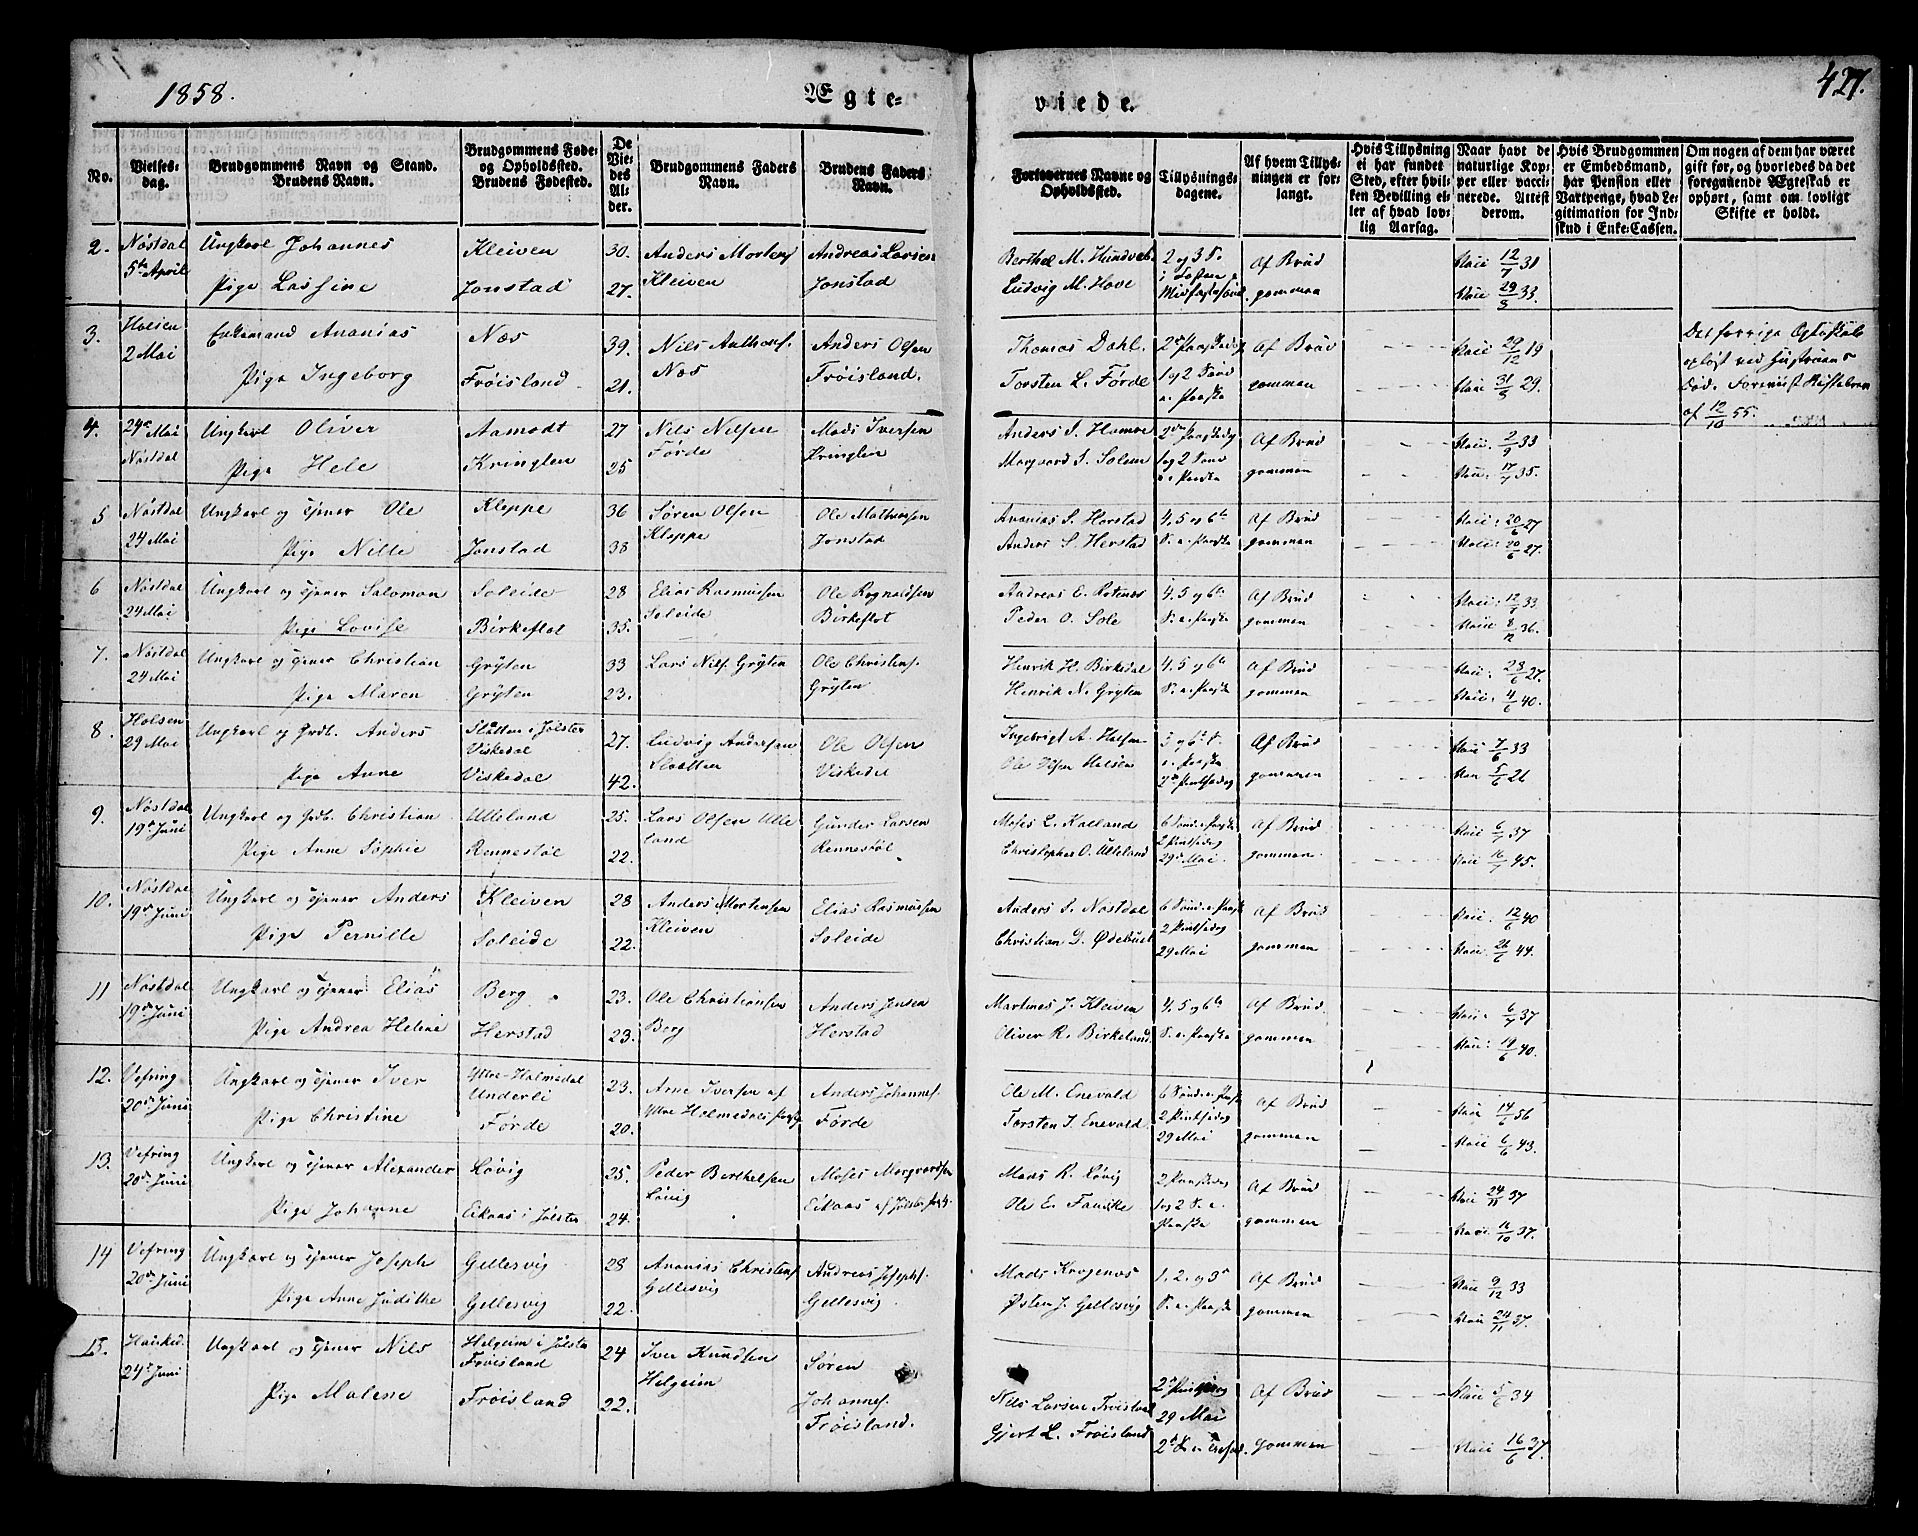 1858.
Ægte-
viede.
427.
No.
Vielses-
dag.
Brudgommens Navn og Stand.
Brudens Navn.
Brudgommens Føde-
og Opholdssted.
Brudens Fødested.
De
Vie-
des
Al-
der.
Brudgommens Faders
Navn.
Brudens Faders
Navn.
Forlovernes Navne og
Opholdssted.
Tillysnings-
dagene.
Af hvem Tillys-
ningen er for-
langt.
Hvis Tillysning
ei har fundet
Sted, efter hvil-
ken Bevilling el-
ler af hvad lov-
lig Aarsag.
Naar havt de
naturlige Kop-
per eller vacci-
nerede. Attest
derom.
Hvis Brudgommen
er Embedsmand,
har Pension eller
Vartpenge, hvad Le-
gitimation for Ind-
skud i Enke-Cassen.
Om nogen af dem har været
gift før, og hvorledes da det
foregaaende Ægteskab er
ophørt, samt om lovligt
Skifte er holdt.
2. Nöstdal 5te April
Ungkarl Johannes Kleiven 30. Anders Mortens Kleiven Andreas Larsen Jonstad
Pige Lassine Jonstad 27.
Berthel M. Ludvig M. Hove 2 og 3 S. i Fasten Af Brudgommen 12/7 31 29/3 33.
3. 2 Mai
Enkemand Ananias Næs 39. Nils Anthons. Næs Anders Olsen Tröisland.
Pige Ingeborg Fröisland. 21.
Thomas Dahl. Torsten L. Förde 1 og 2 Sönd e. Paaske Af Brudgommen 29/12 19 31/3 29.
Det forrige
opløst ved Hustruens
Död.
af 12/10 55.
4. 24de Mai Nöstdal
Ungkarl Oliver Aamodt 27 Nils Nilsen Förde Mads Iversen Kringlen
Pige Hele Kringlen 25
Anders S. Marqvard S. Solem 1 og 2 Sönd e. Paaske Af Brudgommen 2/9 33 17/7 35.
5 Nöstdal 24 Mai
Ungkarl og Tjener Ole Kleppe 36 Sören Olsen Kleppe Ole Mathiesen Jonstad
Pige Nille Jonstad 38
Ananias S. Herstad Anders S. Herstad 4, 5 og 6te S. e. Paaske Af Brudgommen 20/6 27 20/6 27.
6 Nöstdal 24 Mai
Ungkarl og Tjener Salomon Soleide 28 Elias Rasmussen Soleide Ole Rognaldsen Birkeflot
Pige Lovise Birkeflot 35.
Andreas E. Peder O. Sole 4, 5 og 6te S. e. Paaske Af Brudgommen 12/7 33 8/12 36.
7. Nöstdal 24 Mai
Ungkarl og Tjener Christian Gryten 33 Lars Nils. Gryten Ole Christens. Gryten
Pige Maren Gryten 23.
Henrik H. Birkedal Henrik N. Gryten 4, 5 og 6te S. e. Paaske Af Brudgommen 23/6 27. 4/6 40.
8. Holsen 29 Mai
Ungkarl og Grdb. Anders Slåtten i Jölster Viskedal 27. Ludvig Andersen Slaatten Ole Olsen Viskedal
Pige Anne Viskedal 42.
Ingebrigt A. Holsen Ole Olsen Holsen e. Paaske 2den Pintsedag Af Brudgommen 7/6 33 5/6 21
9. Nöstdal 19de Juni
Ungkarl og Grdb. Christian Ulleland 25. Lars Olsen Ulleland Gunder Larsen Rennestöl
Pige Anne Sophie Rennestöl 22.
Moses L. Kalland Christopher O. Ulleland 6 Sönd. e. Paaske 2 Pintsedag 29 Mai Af Brudgommen 6/7 37 16/7 45.
10. Nöstdal 19de Juni
Ungkarl og Tjener Anders Kleiven 28 Anders Mortensen Kleiven Elias Rasmussen Soleide
Pige Pernille Soleide 22.
Anders S. Nöstdal Christian D. Ødebust 6 Sönd. e. Paaske 2 Pintsedag 29 Mai Af Brudgommen 12/6 40 26/6 44.
11 Nöstdal 19de Juni
Ungkarl og Tjener Elias Berg 23. Ole Christiansen Berg Anders Jensen Herstad
Pige Andrea Helene Herstad 23.
Martines J. Kleiven Oliver R. Birkeland 4, 5 og 6te S. e. Paaske Af Brudgommen 6/7 37 19/6 40.
12. Vefring 20de Juni
Ungkarl og Tjener Iver Ytre-Holmedal Underli 23. Arne Iversen af Ytre Holmedals Anders Johannes. Förde
Pige Christine Förde 20.
Ole M. Enevald Torsten J. Enevald 6 Sönd. e. Paaske 2 Pintsedag 29 Mai Af Brudgommen 14/6 56 6/6 43.
13. Vefring 20de Juni
Ungkarl og Tjener Alexander Lövig 25. Peder Berthelsen Lövig Moses Marqvardsen Eikaas af Jölster
Pige Johanne Eikaas i Jölster 24.
Mads R. Lövig Ole E. 2 Paaskedag 1 og 2 S. e. Paaske Af Brudgommen 24/11 37 11/10 37.
14 Vefring 20de Juni
Ungkarl og Tjener Joseph Gellesvig 28 Ananias Christens. Gellesvig Andreas Josephs. Gellesvig
Pige Anne Judithe Gellesvig 22.
Mads Kragenæs Østen J. Gellesvig 1. 2. og 3die S. e. Paaske Af Brudgommen 9/12 33 24/11 37.
15. 24de Juni
Ungkarl og Tjener Nils Helgeim i Jölster Fröisland 24 Iver Knudsen Helgeim Sören Johannes. Fröisland.
Pige Malene Fröisland 22.
Nils Larsen Gjert L. Fröisland 29 Mai Af Brudgommen 5/6 34 16/6 37.